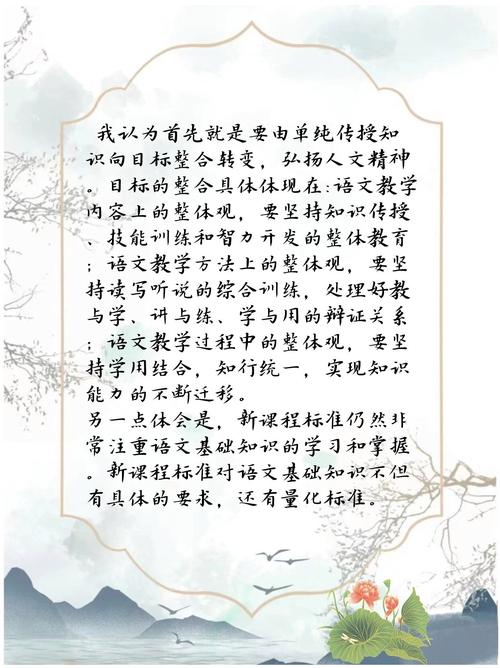 我认为首先就是要由单纯传授知
识向目标整合转变，弘扬人文精神
。目标的整合具体体现在:语文教学
内容上的整体观，要坚持知识传授
、技能训练和智力开发的整体教育
；语文教学方法上的整体观，要坚
持读写听说的综合训练，处理好教
与学、讲与练、学与用的辩证关系
；语文教学过程中的整体观，要坚
持学用结合，知行统一，实现知识
能力的不断迁移。
另一点体会是，新课程标准仍然非
常注重语文基础知识的学习和掌握
。新课程标准对语文基础知识不但
有具体的要求，还有量化标准。